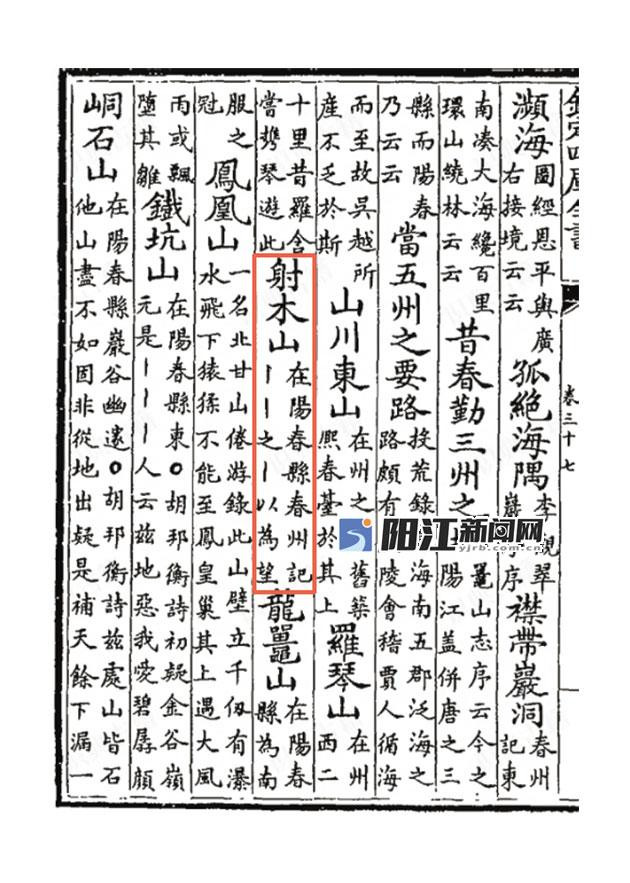 欽定四庫全書
卷三十七
瀕海圖經恩平與廣右接境云云孤絕海隅李觀翠巖序襟帶巖洞春州記東
南湊大海纔百里環山繞林云云昔春勤三州之鼉山志序云今之陽江盖併唐之三
縣而陽春乃云云當五州之要路投荒錄海南五郡泛海之路頗有陵會稽賈人循海
而至故吳越所產不乏於斯山川東山在州之舊築熈春臺於其上羅琴山在州西二
十里昔羅含嘗携琴遊此射木山在陽春縣春州記丨丨之丨以為望蘢鼉山在陽春縣為南
服之冠鳳凰山一名北甘山倦游錄此山壁立千仞有瀑水飛下猿猱不能至鳳皇巢其上遇大風
雨或飄墮其雛鐵坑山在陽春縣東○胡邦衡詩初疑金谷嶺元是丨丨丨人云茲地惡我愛碧孱顔
峒石山在陽春縣巖谷幽邃○胡邦衡詩茲處山皆石他山盡不如固非從地出疑是補天餘下漏一
阳江新闻网
yjrb.com.cn